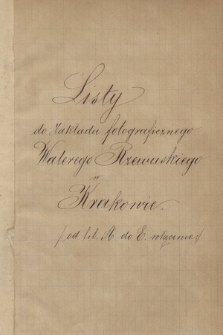 Listy
do Zakładu fotograficznego
Walerego Rzewuskiego
w
Krakowie.
(od lit. A do E. włącznie)